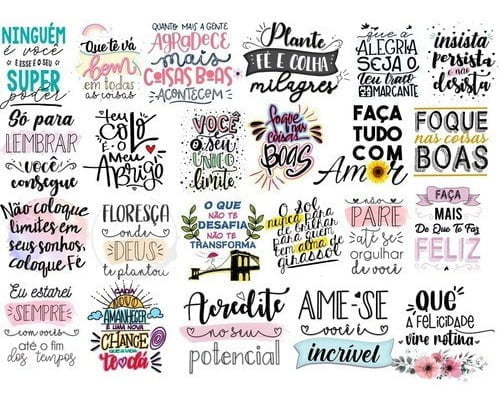 NINGUÉM
é você
E ESSE É O SEU
SUPER
poder
Que te vá
bem
em todas
as coisas
QUANTO MAIS A GENTE
AGRADECE
mais
COISAS BOAS
ACONTECEM
Plante
FÉ E COLHA
milagres
que a
ALEGRIA
SEJA O
teu traço
MARCANTE
insista
persista
e não
desista
Só para
LEMBRAR
você
consegue
teu
COLO
é o
Meu
Abrigo
VOCÊ
é seu
ÚNICO
limite
foque
nas
coisas
BOAS
FAÇA
TUDO
COM
Amor
FOQUE
nas coisas
BOAS
Não coloque
limites em
seus sonhos,
coloque Fé
FLORESÇA
onde
DEUS
te plantou
O QUE
NÃO TE
DESAFIA
NÃO TE
TRANSFORMA
O Sol
nunca para
de brilhar
Para quem
tem alma de
girassol
não
PARE
até se
orgulhar
de você
FAÇA
MAIS
Do Que Te Faz
FELIZ
Eu estarei
SEMPRE
com vocês
até o fim
dos tempos
CADA
NOVO
AMANHECER
É UMA NOVA
CHANCE
QUE A VIDA
te dá
Acredite
no seu
potencial
AME-SE
você é
incrível
QUE
A FELICIDADE
vire rotina